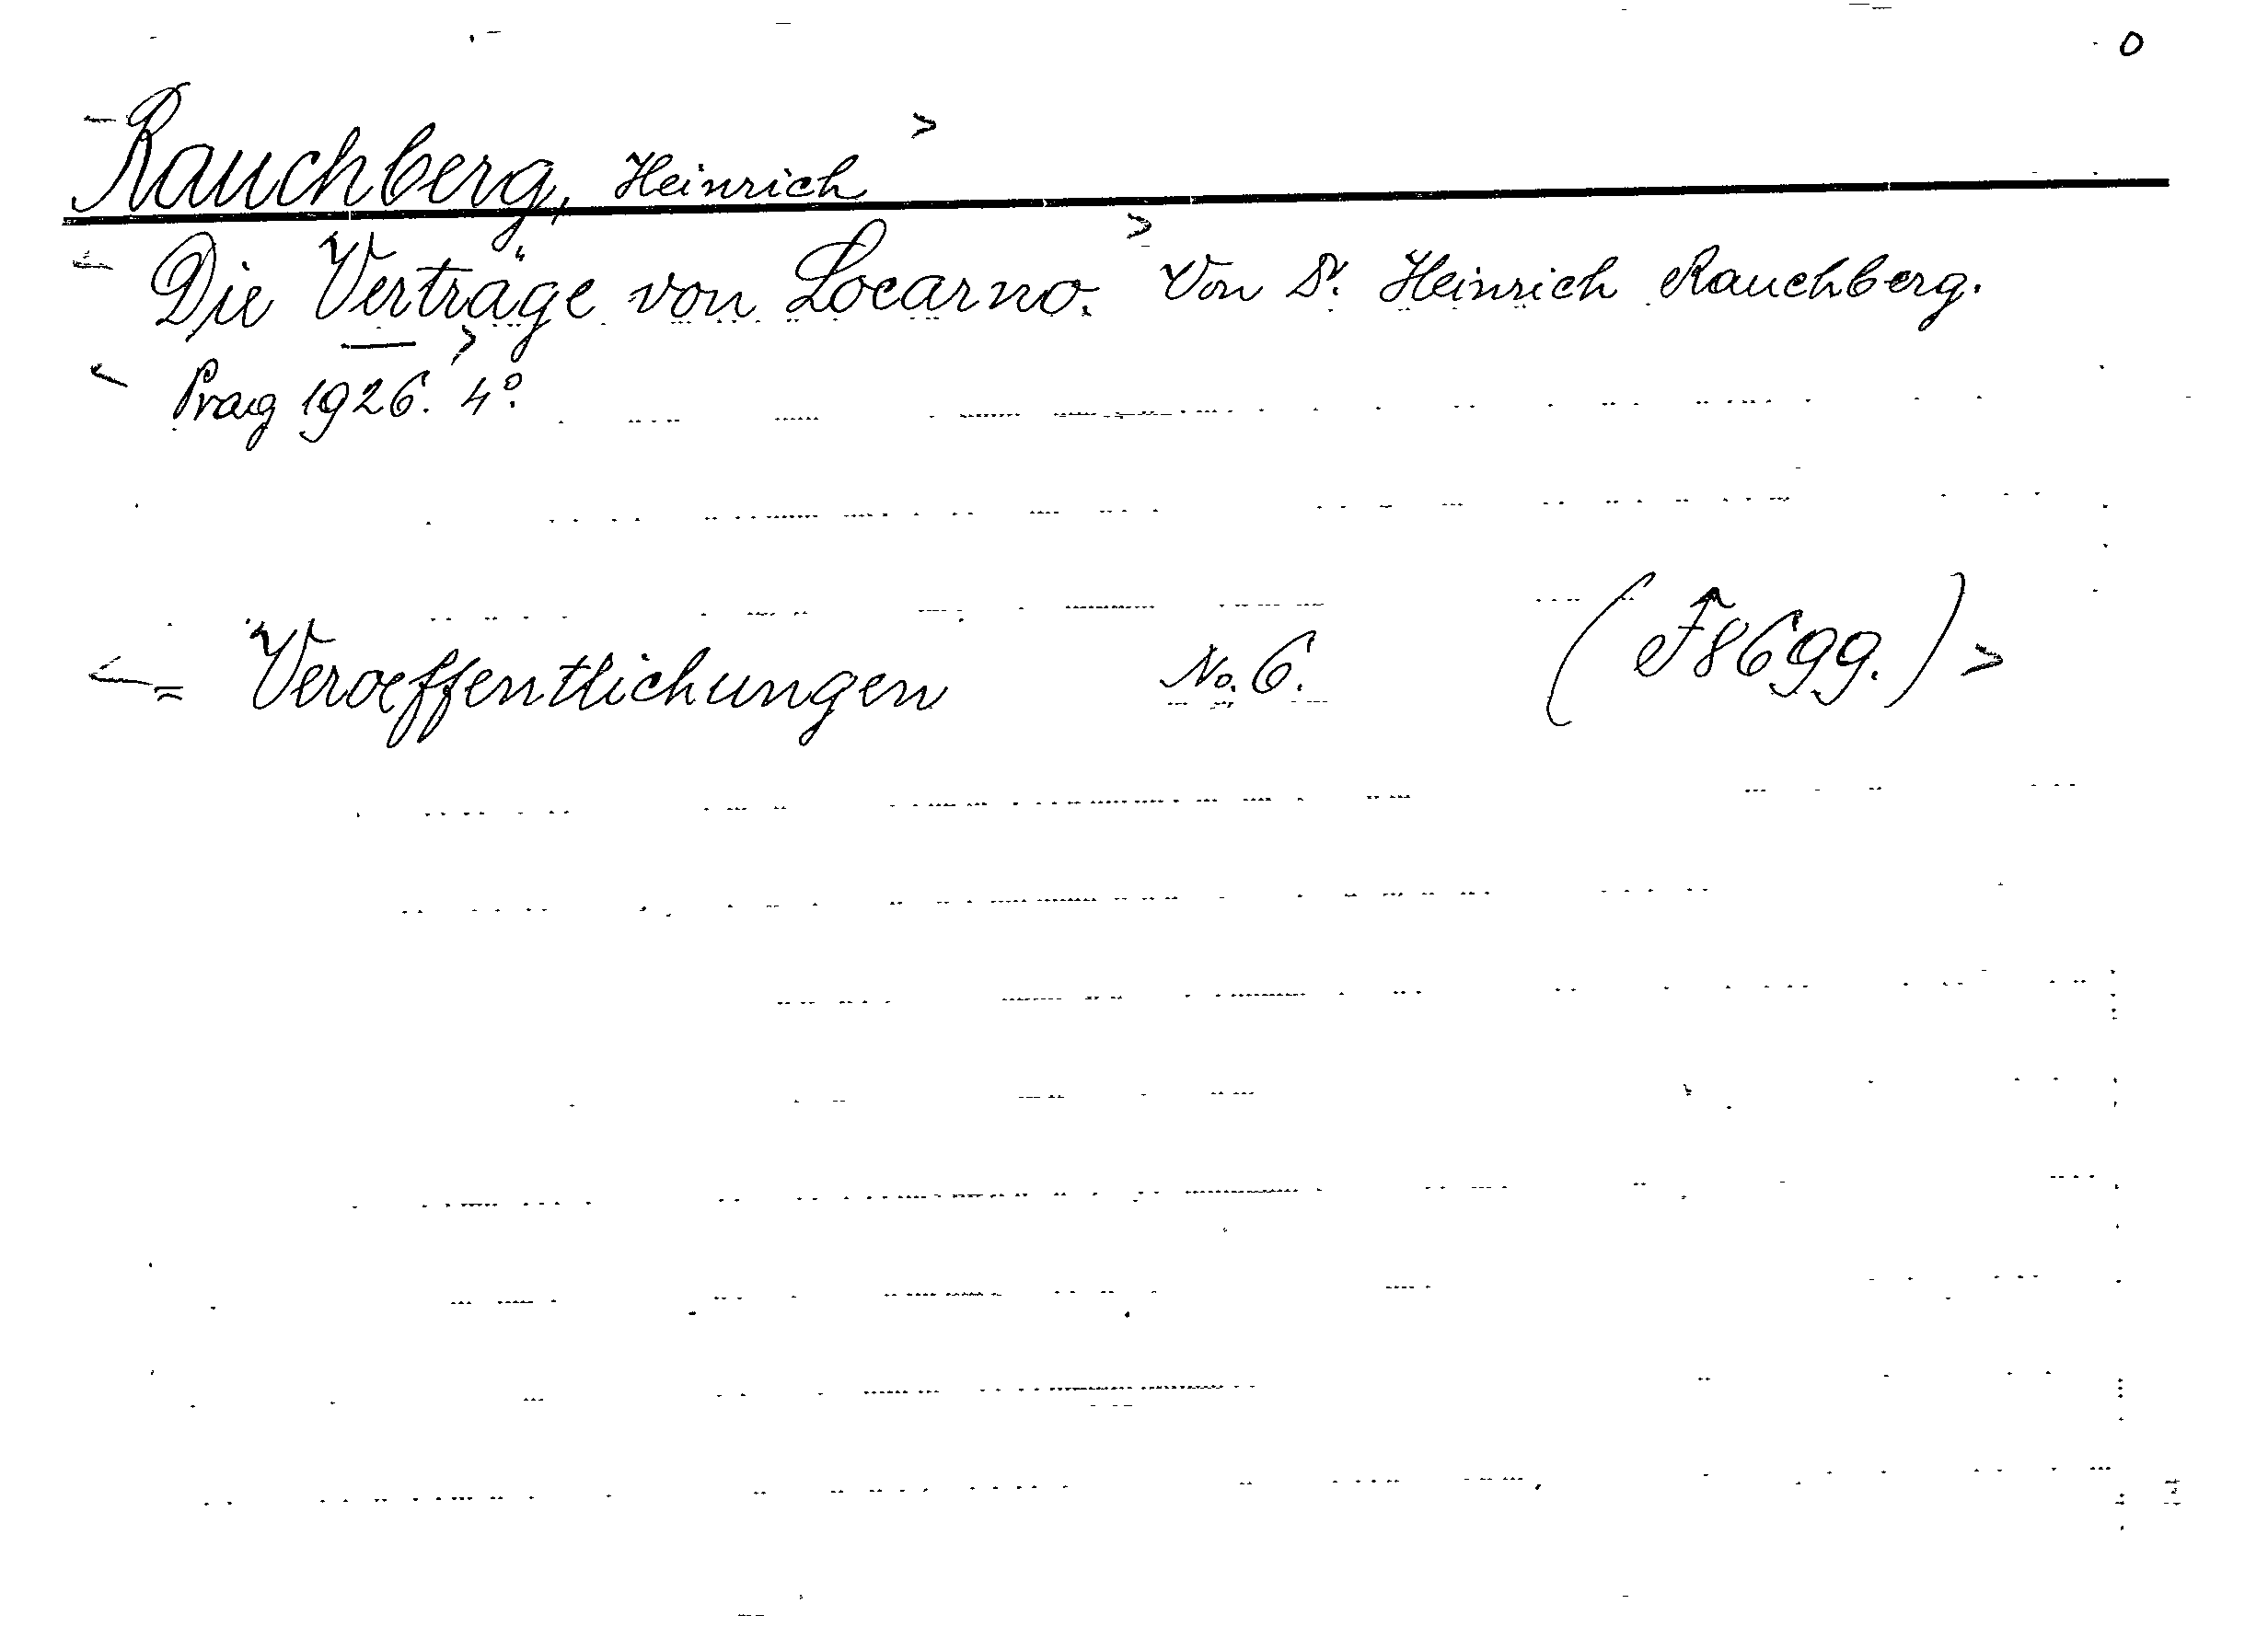 0
Rauchberg, Heinrich
Die Verträge von Locarno. Von Dr. Heinrich Rauchberg.
Prag 1926. 4º.
= Veroeffentlichungen No. 6. (F8699.)